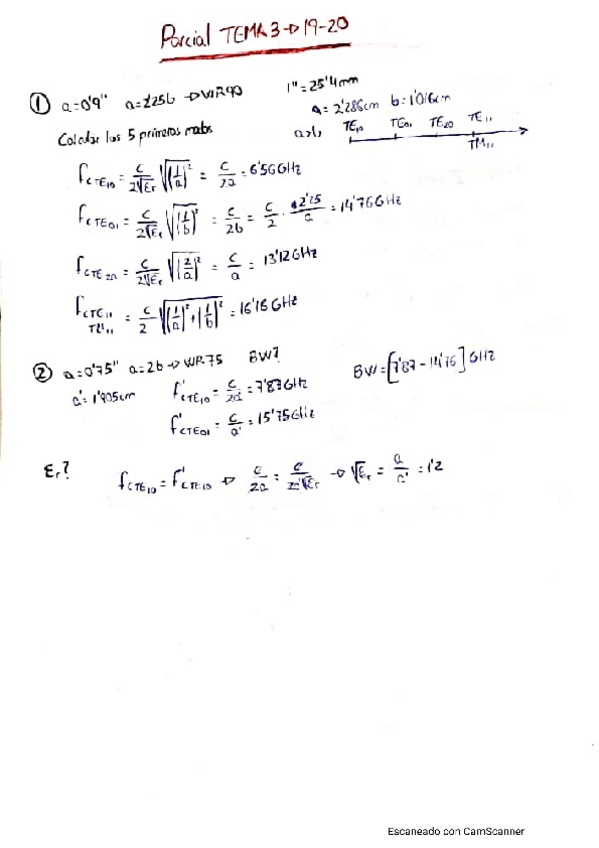 Parcial TEMA 3 → 19-20
① a=0'9" a=2'25b → WR90 1"=25'4mm
a=2'286cm b=1'016cm
Calcular los 5 primeros modos a>b TE₁₀ TE₀₁ TE₂₀ TE₁₁
TM₁₁
f_cTE₁₀ = c/(2√εr) √((1/a)²) = c/2a = 6'56GHz
f_cTE₀₁ = c/(2√εr) √((1/b)²) = c/2b = c/2 · 2'25/a = 14'76GHz
f_cTE₂₀ = c/(2√εr) √((2/a)²) = c/a = 13'12GHz
f_cTE₁₁ TM₁₁ = c/2 √((1/a)²+(1/b)²) = 16'16GHz
② a=0'75" a=2b → WR75 BW? BW=[7'87-14'76]GHz
a'=1'905cm f'_cTE₁₀ = c/2a' = 7'87GHz
f'_cTE₀₁ = c/a' = 15'75GHz
εr? f_cTE₁₀ = f'_cTE₁₀ → c/2a = c/(2a'√εr) → √εr = a/a' = 1'2
Escaneado con CamScanner